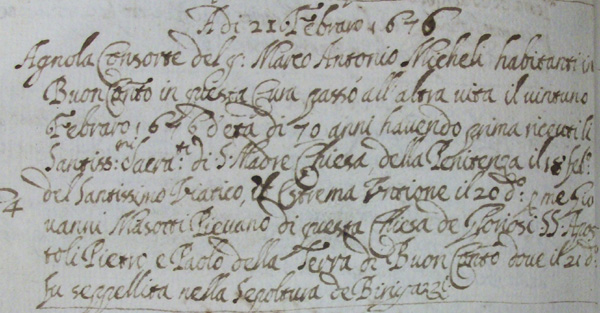 A di 21. Febraro 1676
Agnola Consorte del q: Marco Antonio Micheli habitanti in
Buon Cõnto in questa Cura passó all'altra vita il vintuno
Febraro 1676 d'etá di 70 anni havendo prima riceuti li
Santiss:mi Sacra:ti di S. Madre Chiesa, della Penitenza il 18 feb:
del Santissimo Viatico, et Estrema Untione il 20 d:o p me Gio
vanni Masotti Pievano di questa Chiesa de Gloriosi SS. Apos
toli Pietro e Paolo della Terra di Buon Cõnto dove il 21 d:o
fu seppellita nella Sepoltura de